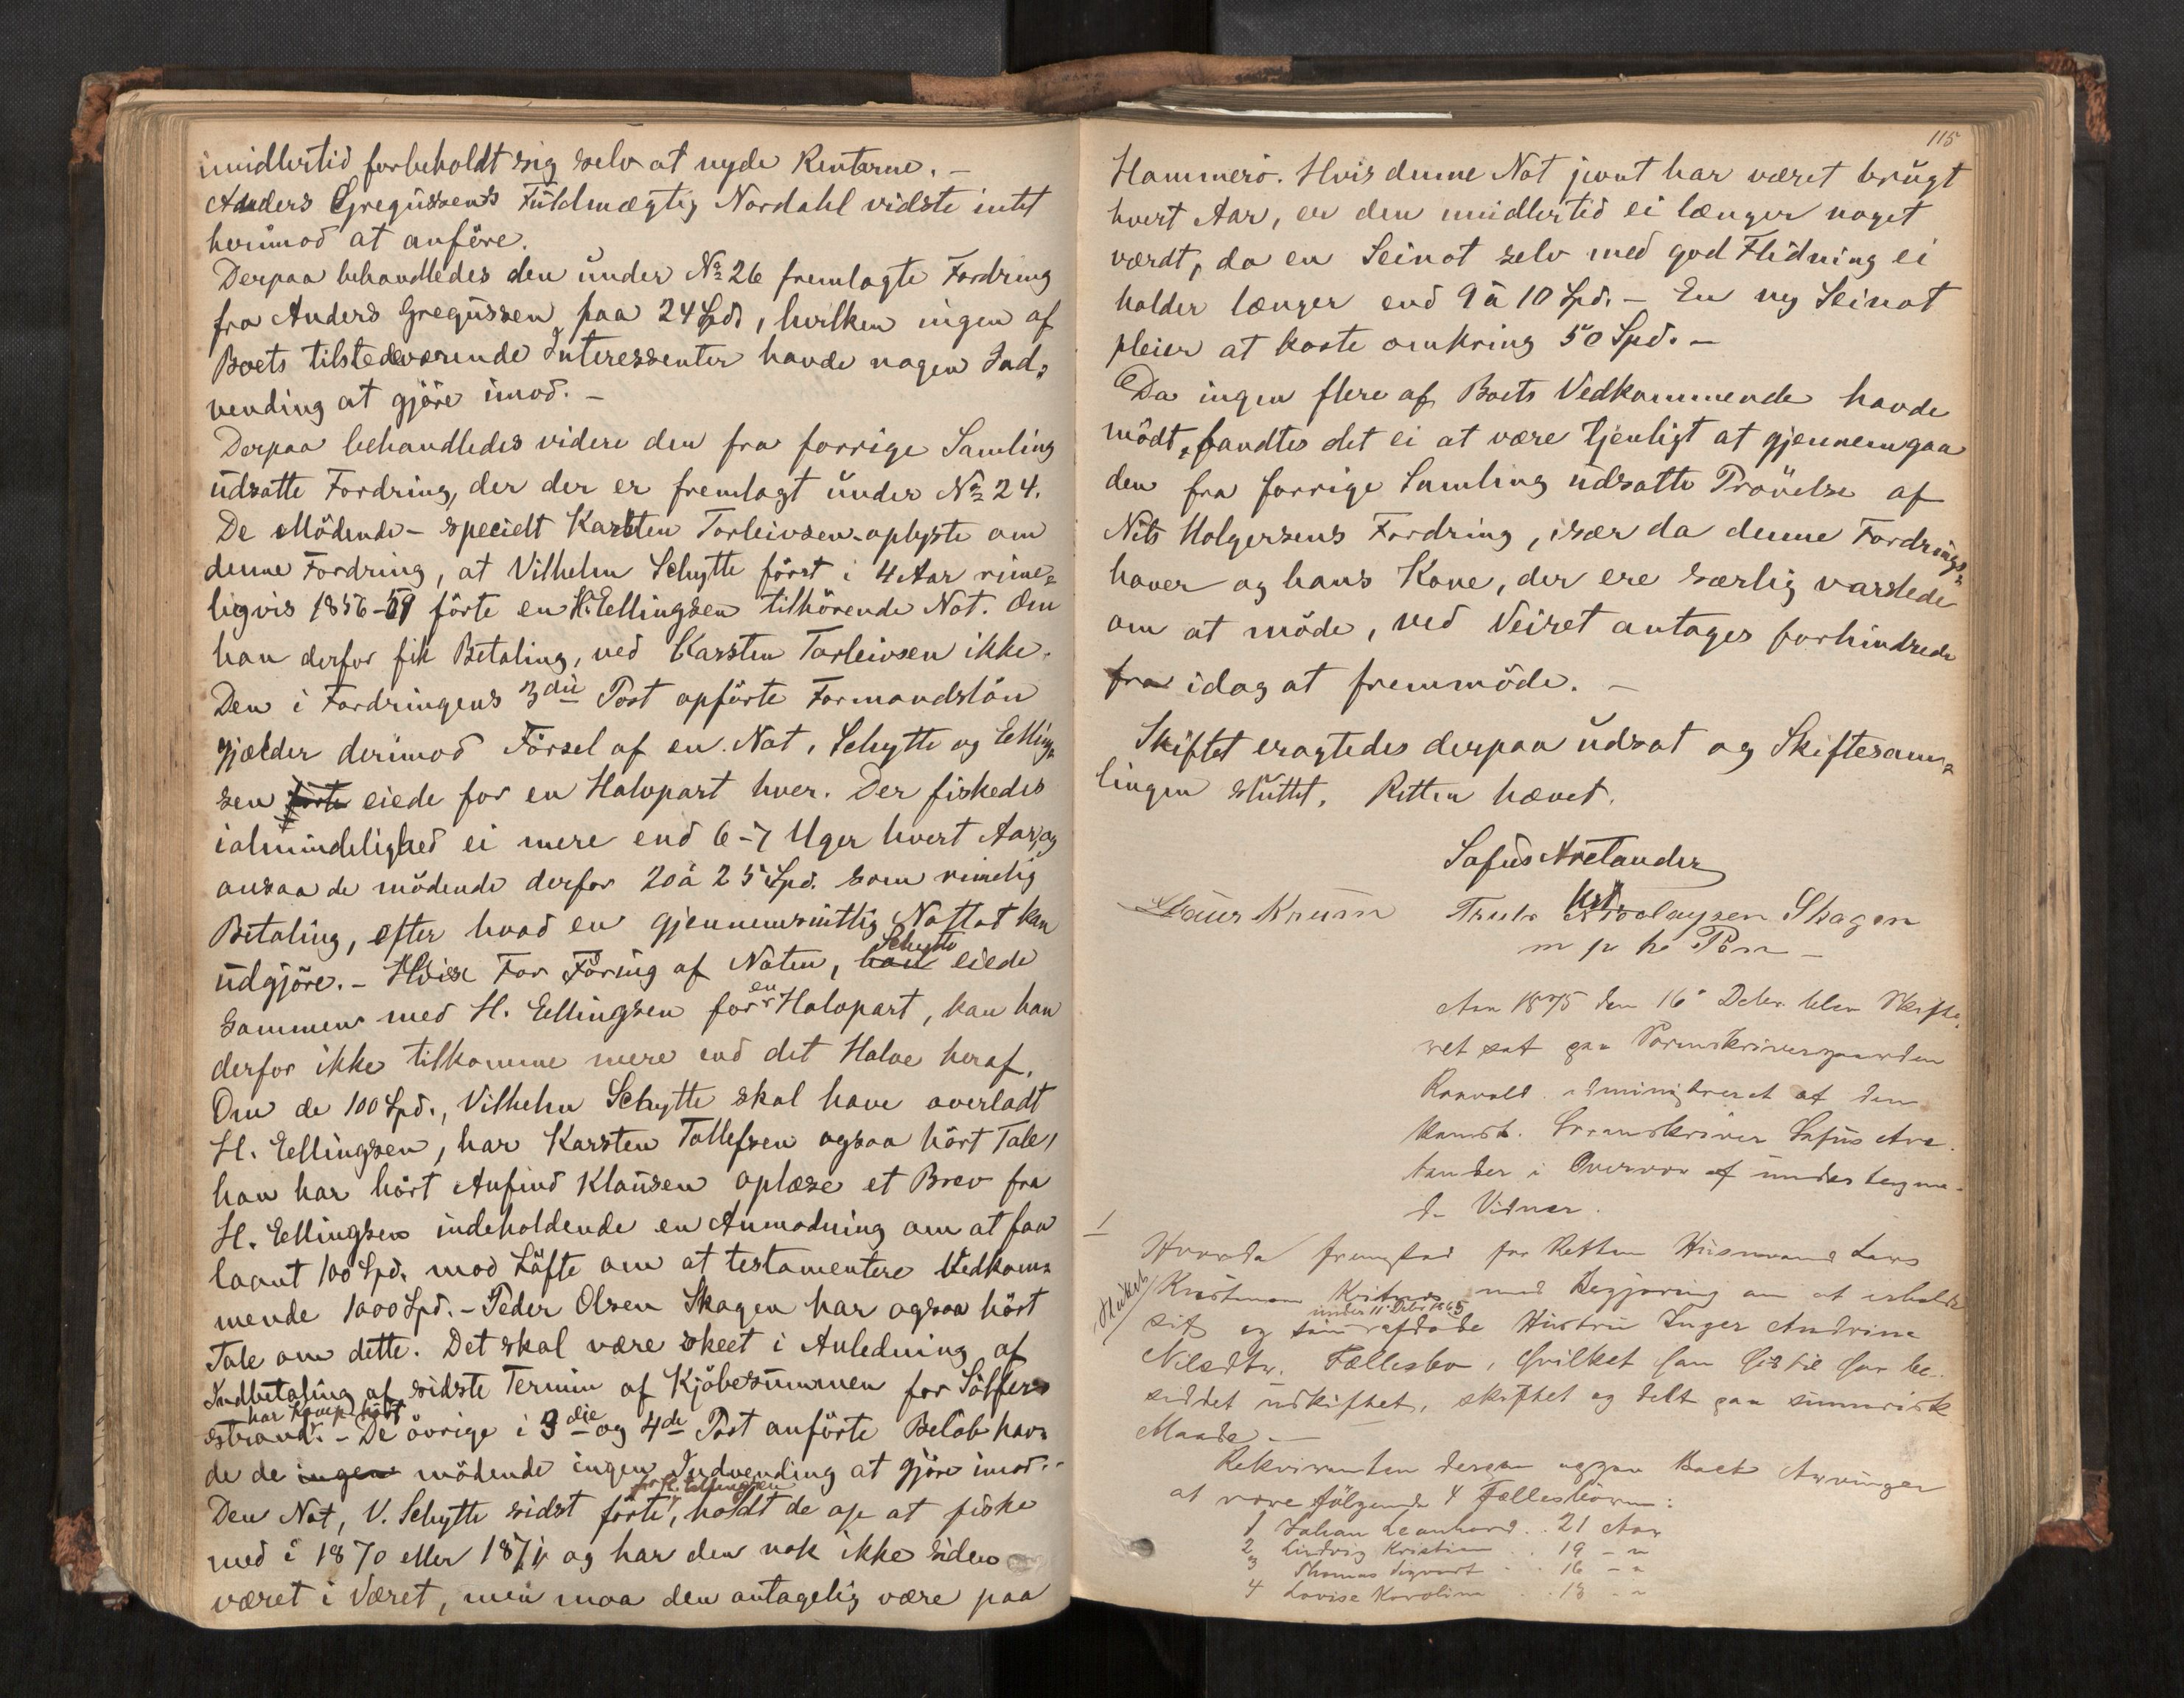 imidlertid forbeholdt sig selv at nyde Renterne. –
Anders Gregussens Fuldmægtig Nordahl vidste intet
herimod at anføre.
Derpaa behandledes den under No 26 fremlagte Fordring
fra Anders Gregussen paa 24 Spd, hvilken ingen af
Boets tilstedeværende Interessenter havde nogen Ind-
vending at gjöre imod. –
Derpaa behandledes videre den fra forrige Samling
udsatte Fordring, der der er fremlagt under No 24.
De Mödende – specielt Karsten Torleivsen oplyste om
denne Fordring, at Vilhelm Schytte först i 4 Aar rime-
ligvis 1856-59 förte en H. Ellingsen tilhörende Not. Om
han derfor fik Betaling, ved Karsten Torleivsen ikke.
Den i Fordringens 3die Post opförte Formandslön
gjælder derimod Försel af en Not, Schytte og Elling-
sen förte eiede for en Halvpart hver. Der fiskedes
ialmindelighed ei mere end 6-7 Uger hvert Aar, og
ansaa de mödende derfor 20 à 25 Spd. som rimelig
Betaling, efter hvad en gjennemsnittlig Notlot kan
udgjöre. – For Föring af Noten, han Schytte eiede
sammen med H. Ellingsen for en Halvpart, kan han
derfor ikke tilkomme mere end det Halve heraf.
Om de 100 Spd., Vilhelm Schytte skal have overladt
H. Ellingsen, har Karsten Tollefsen ogsaa hört Tale,
han har hört Anfind Klausen oplæse et Brev fra
H. Ellingsen indeholdende en Anmodning om at faa
laant 100 Spd. mod Löfte om at testamentere Vedkom-
mende 1000 Spd. – Peder Olsen Skagen har ogsaa hört
Tale om dette. Det skal være skeet i Anledning af
Indbetaling af sidste Termin af Kjöbesummen for Sölfer-
strand. – De övrige i 3die og 4de Post anförte Belöb hav-
de de ingen mödende ingen Indvending at gjöre imod. –
Den Not, V. Schytte sidst förte for H. Ellingsen, holdt de op at fiske
med i 1870 eller 1871 og har den nok ikke siden
været i Været, men maa den antagelig være paa
115
Hammerö. Hvis denne Not jevnt har været brugt
hvert Aar, er den imidlertid ei længer noget
værdt, da en Seinot selv med god Flidning ei
holder længer end 9 à 10 Spd. – En ny Seinot
pleier at koste omkring 50 Spd. –
Da ingen flere af Boets Vedkommende havde
mödt, fandtes det ei at være tjenligt at gjennemgaa
den fra forrige Samling udsatte Prövelse af
Nils Holgersens Fordring, især da denne Fordrings-
haver og hans Kone, der ere særlig varslede
om at möde, ved Veiret antages forhindrede
fra idag at fremmöde. –
Skiftet eragtedes derpaa udsat og Skiftesam-
lingen sluttet. Retten hævet.
Sofus Arctander
Knum Nicolaysen Skagen
m p h Pen –
Aar 1875 den 16 Debr. blev Skifte-
ret sat paa Sorenskrivergaarden
administreret af den
konst. Sorenskriver Sofus Arc-
tander i Overvær af undertegne-
de Vidner.
1
Hvorda fremstod for Retten Husmand Lars
Kristian med Begjæring om at erholde
sit og sin under 11 Debr 1865 afdøde Hustru Inger Andrine
Nilsdtr. Fællesbo, hvilket han hidtil har be-
siddet uskiftet, skiftet og delt paa summarisk
Maade. –
Rekvirenten derpaa opgav Boets Arvinger
at være følgende 4 Fællesbörn:
1 Johan Leonhard .. 21 Aar
2 Ludvig Kristian .. 19 – "
3 Thomas Sigvart .. 16 – "
4 Lovise Karoline .. 13 – "